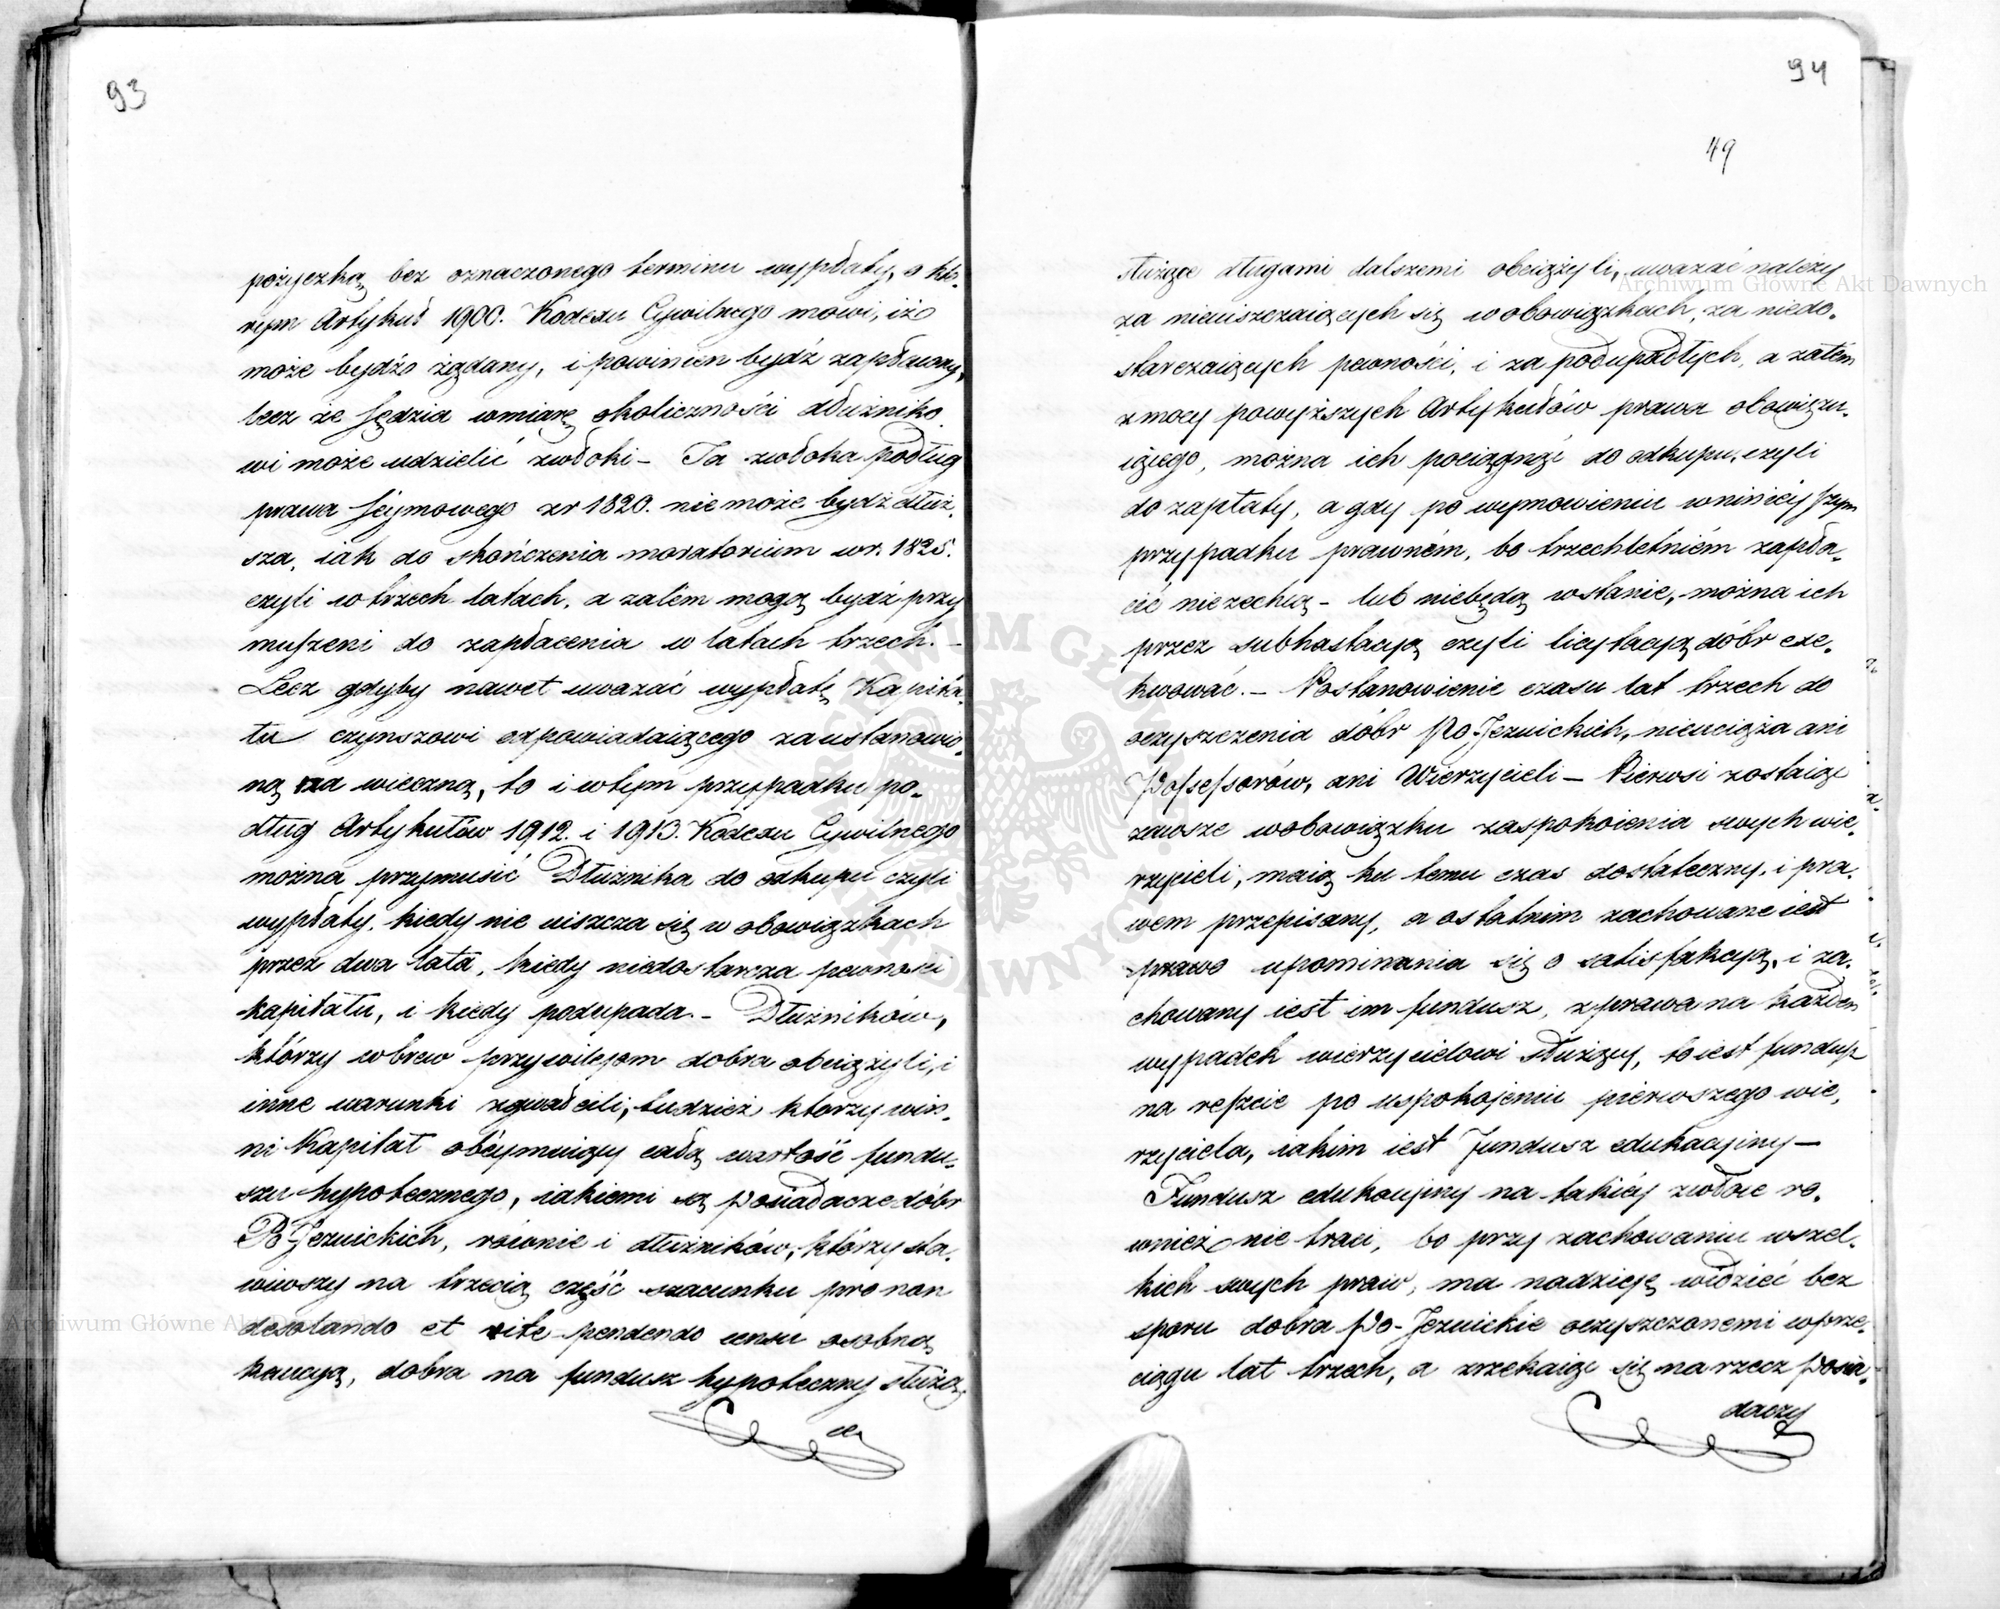 93
pożyczką bez oznaczonego terminu wypłaty, o któ-
rym Artykuł 1900. Kodexu Cywilnego mówi, iż
może bydź żądany, i powinien bydź zapłacony,
lecz że Sędzia wmiarę okoliczności dłużniko-
wi może udzielić zwłoki – Ta zwłoka podług
prawa Seymowego zr 1820. nie może bydź dłuż-
sza, iak do skończenia moratorium wr. 1825.
czyli w trzech latach, a zatem mogą bydź przy
muszeni do zapłacenia w latach trzech. –
Lecz gdyby nawet uważać wypłatę Kapita-
łu czynszowi odpowiadaiącego za ustanowio-
ną za wieczną, to i wtym przypadku po-
dług Artykułów 1912. i 1913. Kodexu Cywilnego
można przymusić Dłużnika do odkupu czyli
wypłaty, kiedy nie uiszcza się w obowiązkach
przez dwa lata, kiedy niedostarcza pewności
kapitału, i kiedy podupada. – Dłużników,
którzy wbrew przywilejom dobra obciążyli, i
inne warunki zgwałcili, tudzież którzy win-
ni Kapitał obeymuiący całą wartość fundu-
szu hypotecznego, iakiemi są Posiadacze dóbr
Po-Jezuickich, równie i dłużników, którzy sta-
wiwszy na trzecią część szacunku pro non
desolando et rite pendendo censu osobną
kaucyą, dobra na fundusz hypoteczny służą-
ce
94
49
służące długami dalszemi obciążyli, uważać należy
za nieuiszczaiących się wobowiązkach, za niedo-
starczaiących pewności, i za podupadłych, a zatem
z mocy powyższych Artykułów prawa obowiązu-
iącego, można ich pociągnąć do odkupu, czyli
do zapłaty, a gdy po wymowieniu wninieyszym
przypadku prawném, bo trzechletniém zapła-
cić niezechcą – lub niebędą wstanie, można ich
przez subhastacyą czyli licytacyą dóbr exe-
kwować. – Postanowienie czasu lat trzech do
oczyszczenia dóbr Po-Jezuickich, nieuciąża ani
Possessorów, ani Wierzycieli – Pierwsi zostaiąc
zawsze wobowiązku zaspokoienia swych wie-
rzycieli, maią ku temu czas dostateczny, i pra-
wem przepisany, a ostatnim zachowane iest
prawo upominania się o satisfakcyą, i za-
chowany iest im fundusz, z prawa na każden
wypadek wierzycielowi służący, to iest fundusz
na reszcie po uspokojeniu pierwszego wie-
rzyciela, iakim iest Fundusz edukacyjny –
Fundusz edukacyjny na takiéy zwłoce ró-
wnież nie traci, bo przy zachowaniu wszel-
kich swych praw, ma nadzieję widzieć bez
sporu dobra Po-Jezuickie oczyszczonemi wprze-
ciągu lat trzech, a zrzekaiąc się na rzecz Posia-
daczy
Archiwum Główne Akt Dawnych
Archiwum Główne Akt Dawnych
ARCHIWUM GŁÓWNE AKT DAWNYCH